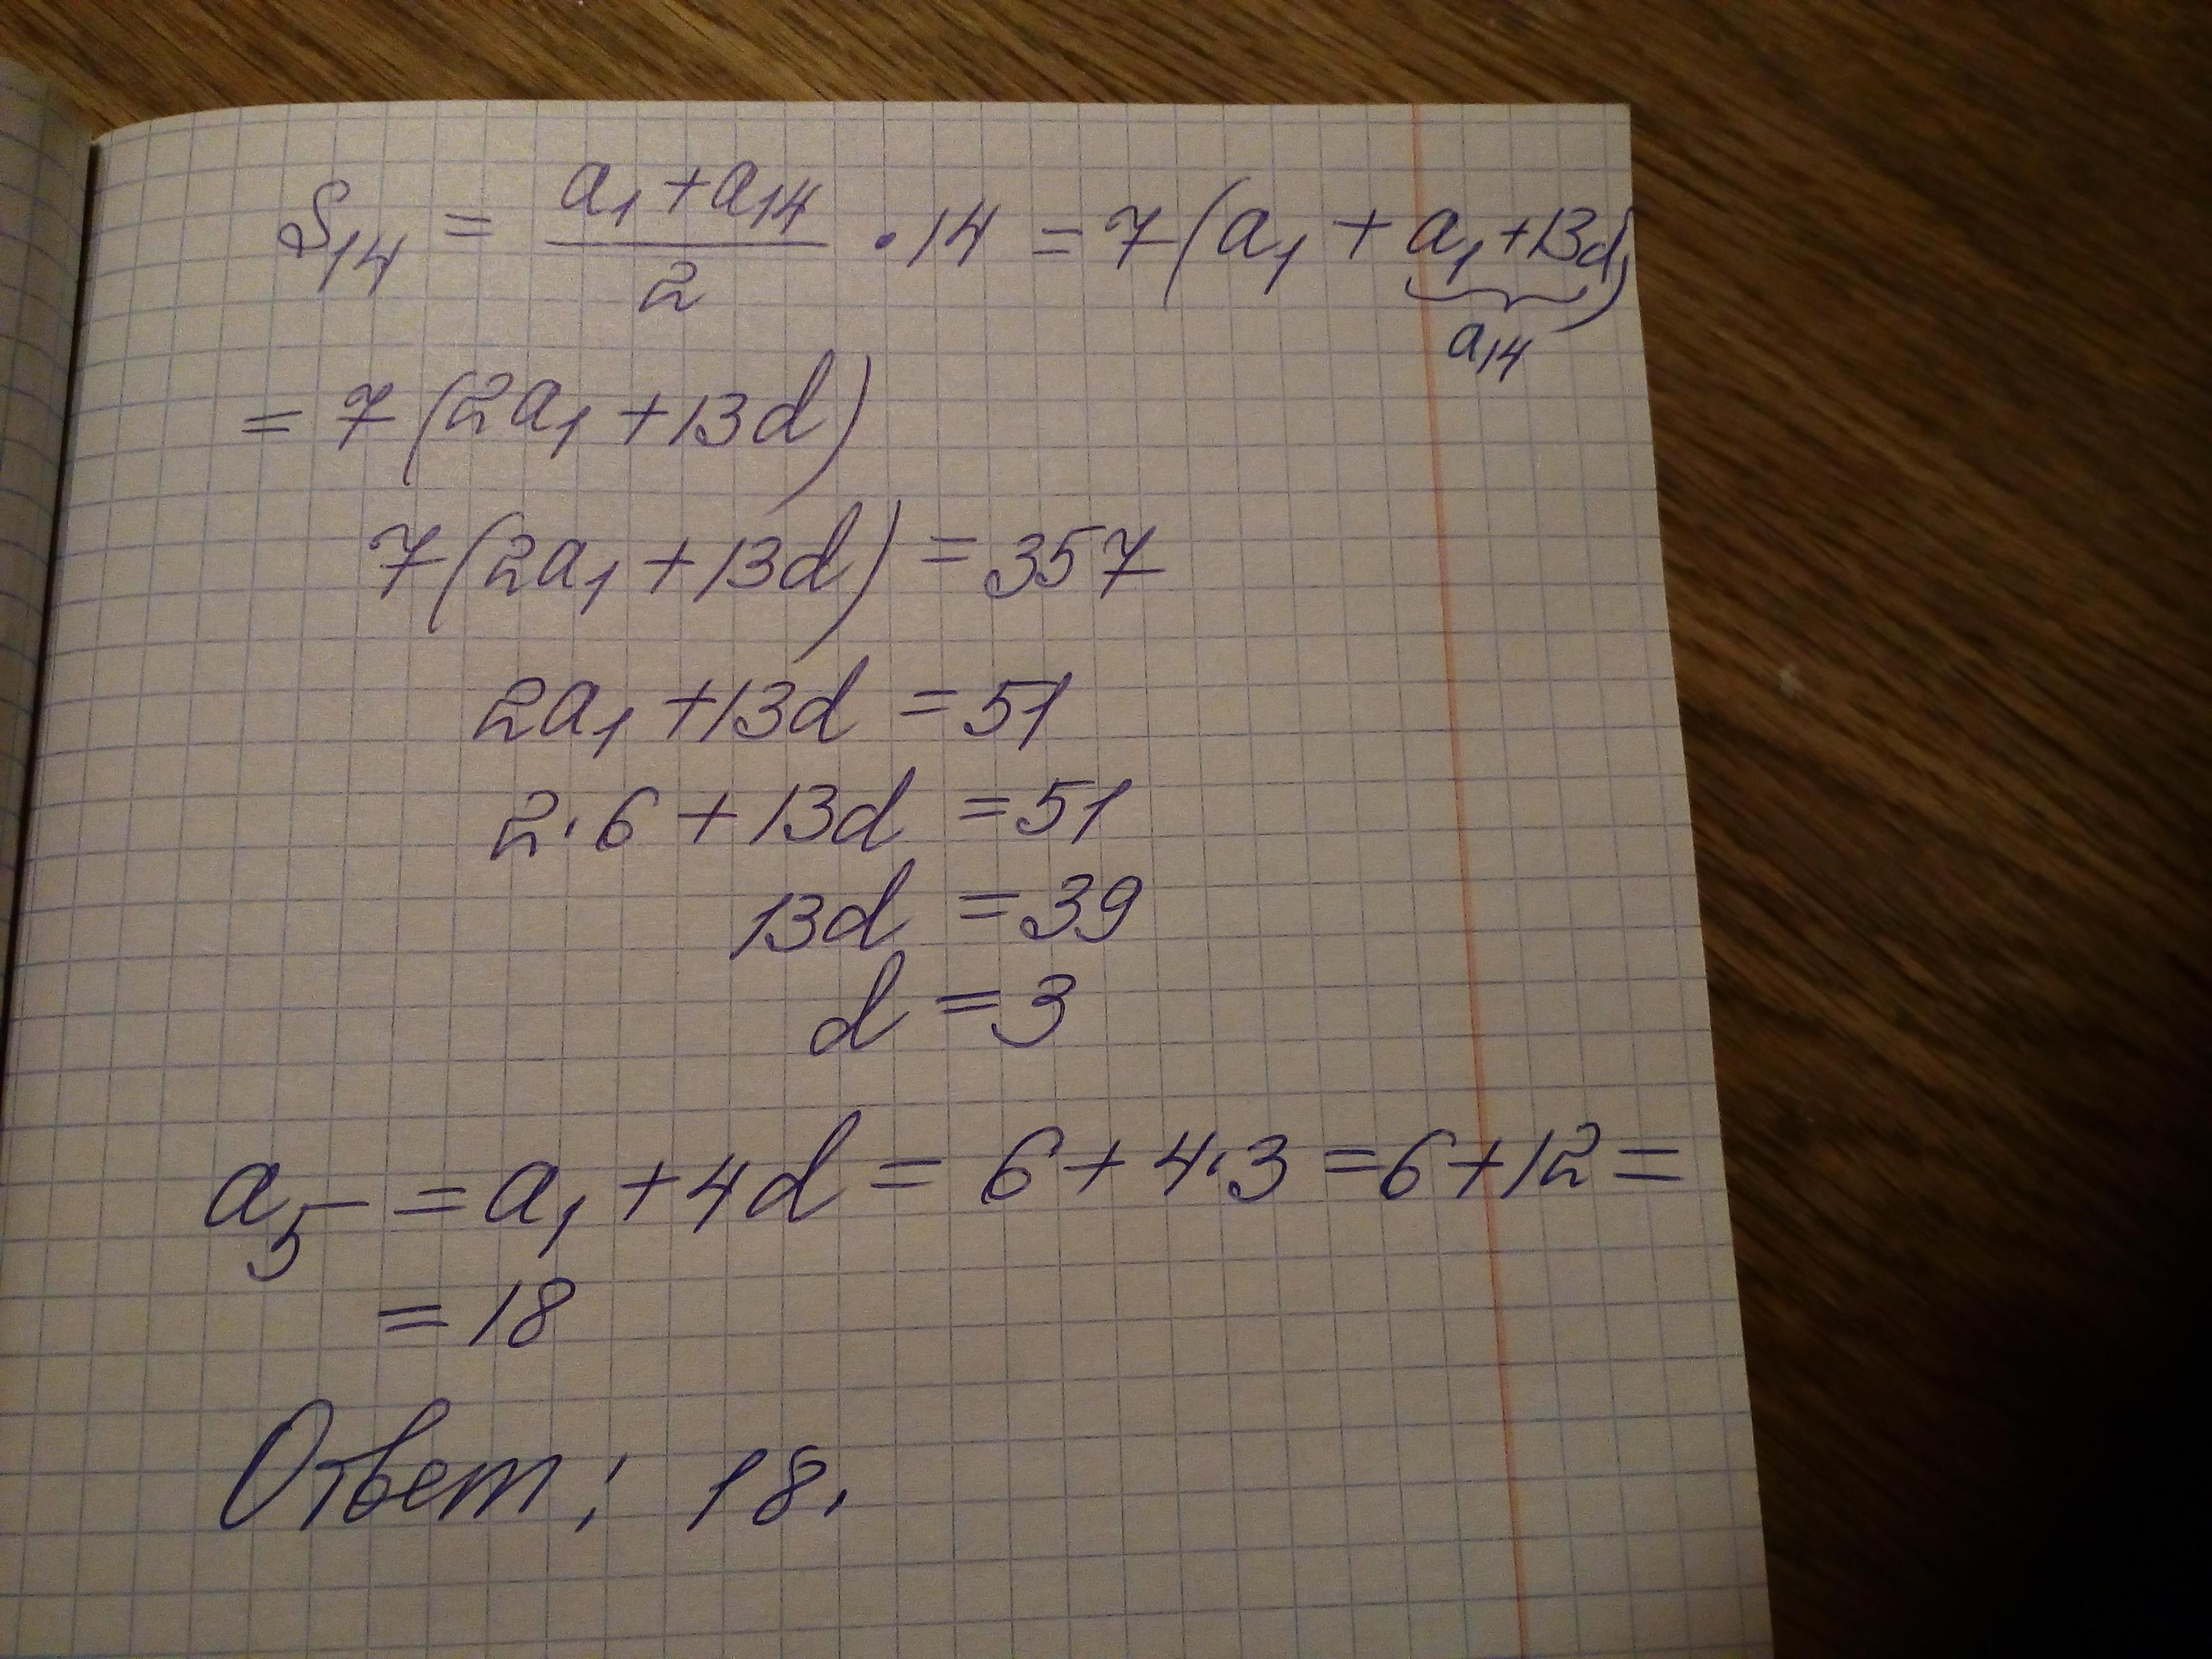 S₁₄ = (a₁ + a₁₄)/2 · 14 = 7(a₁ + a₁ + 13d)
a₁₄
= 7(2a₁ + 13d)
7(2a₁ + 13d) = 357
2a₁ + 13d = 51
2·6 + 13d = 51
13d = 39
d = 3
a₅ = a₁ + 4d = 6 + 4·3 = 6 + 12 =
= 18
Ответ: 18.